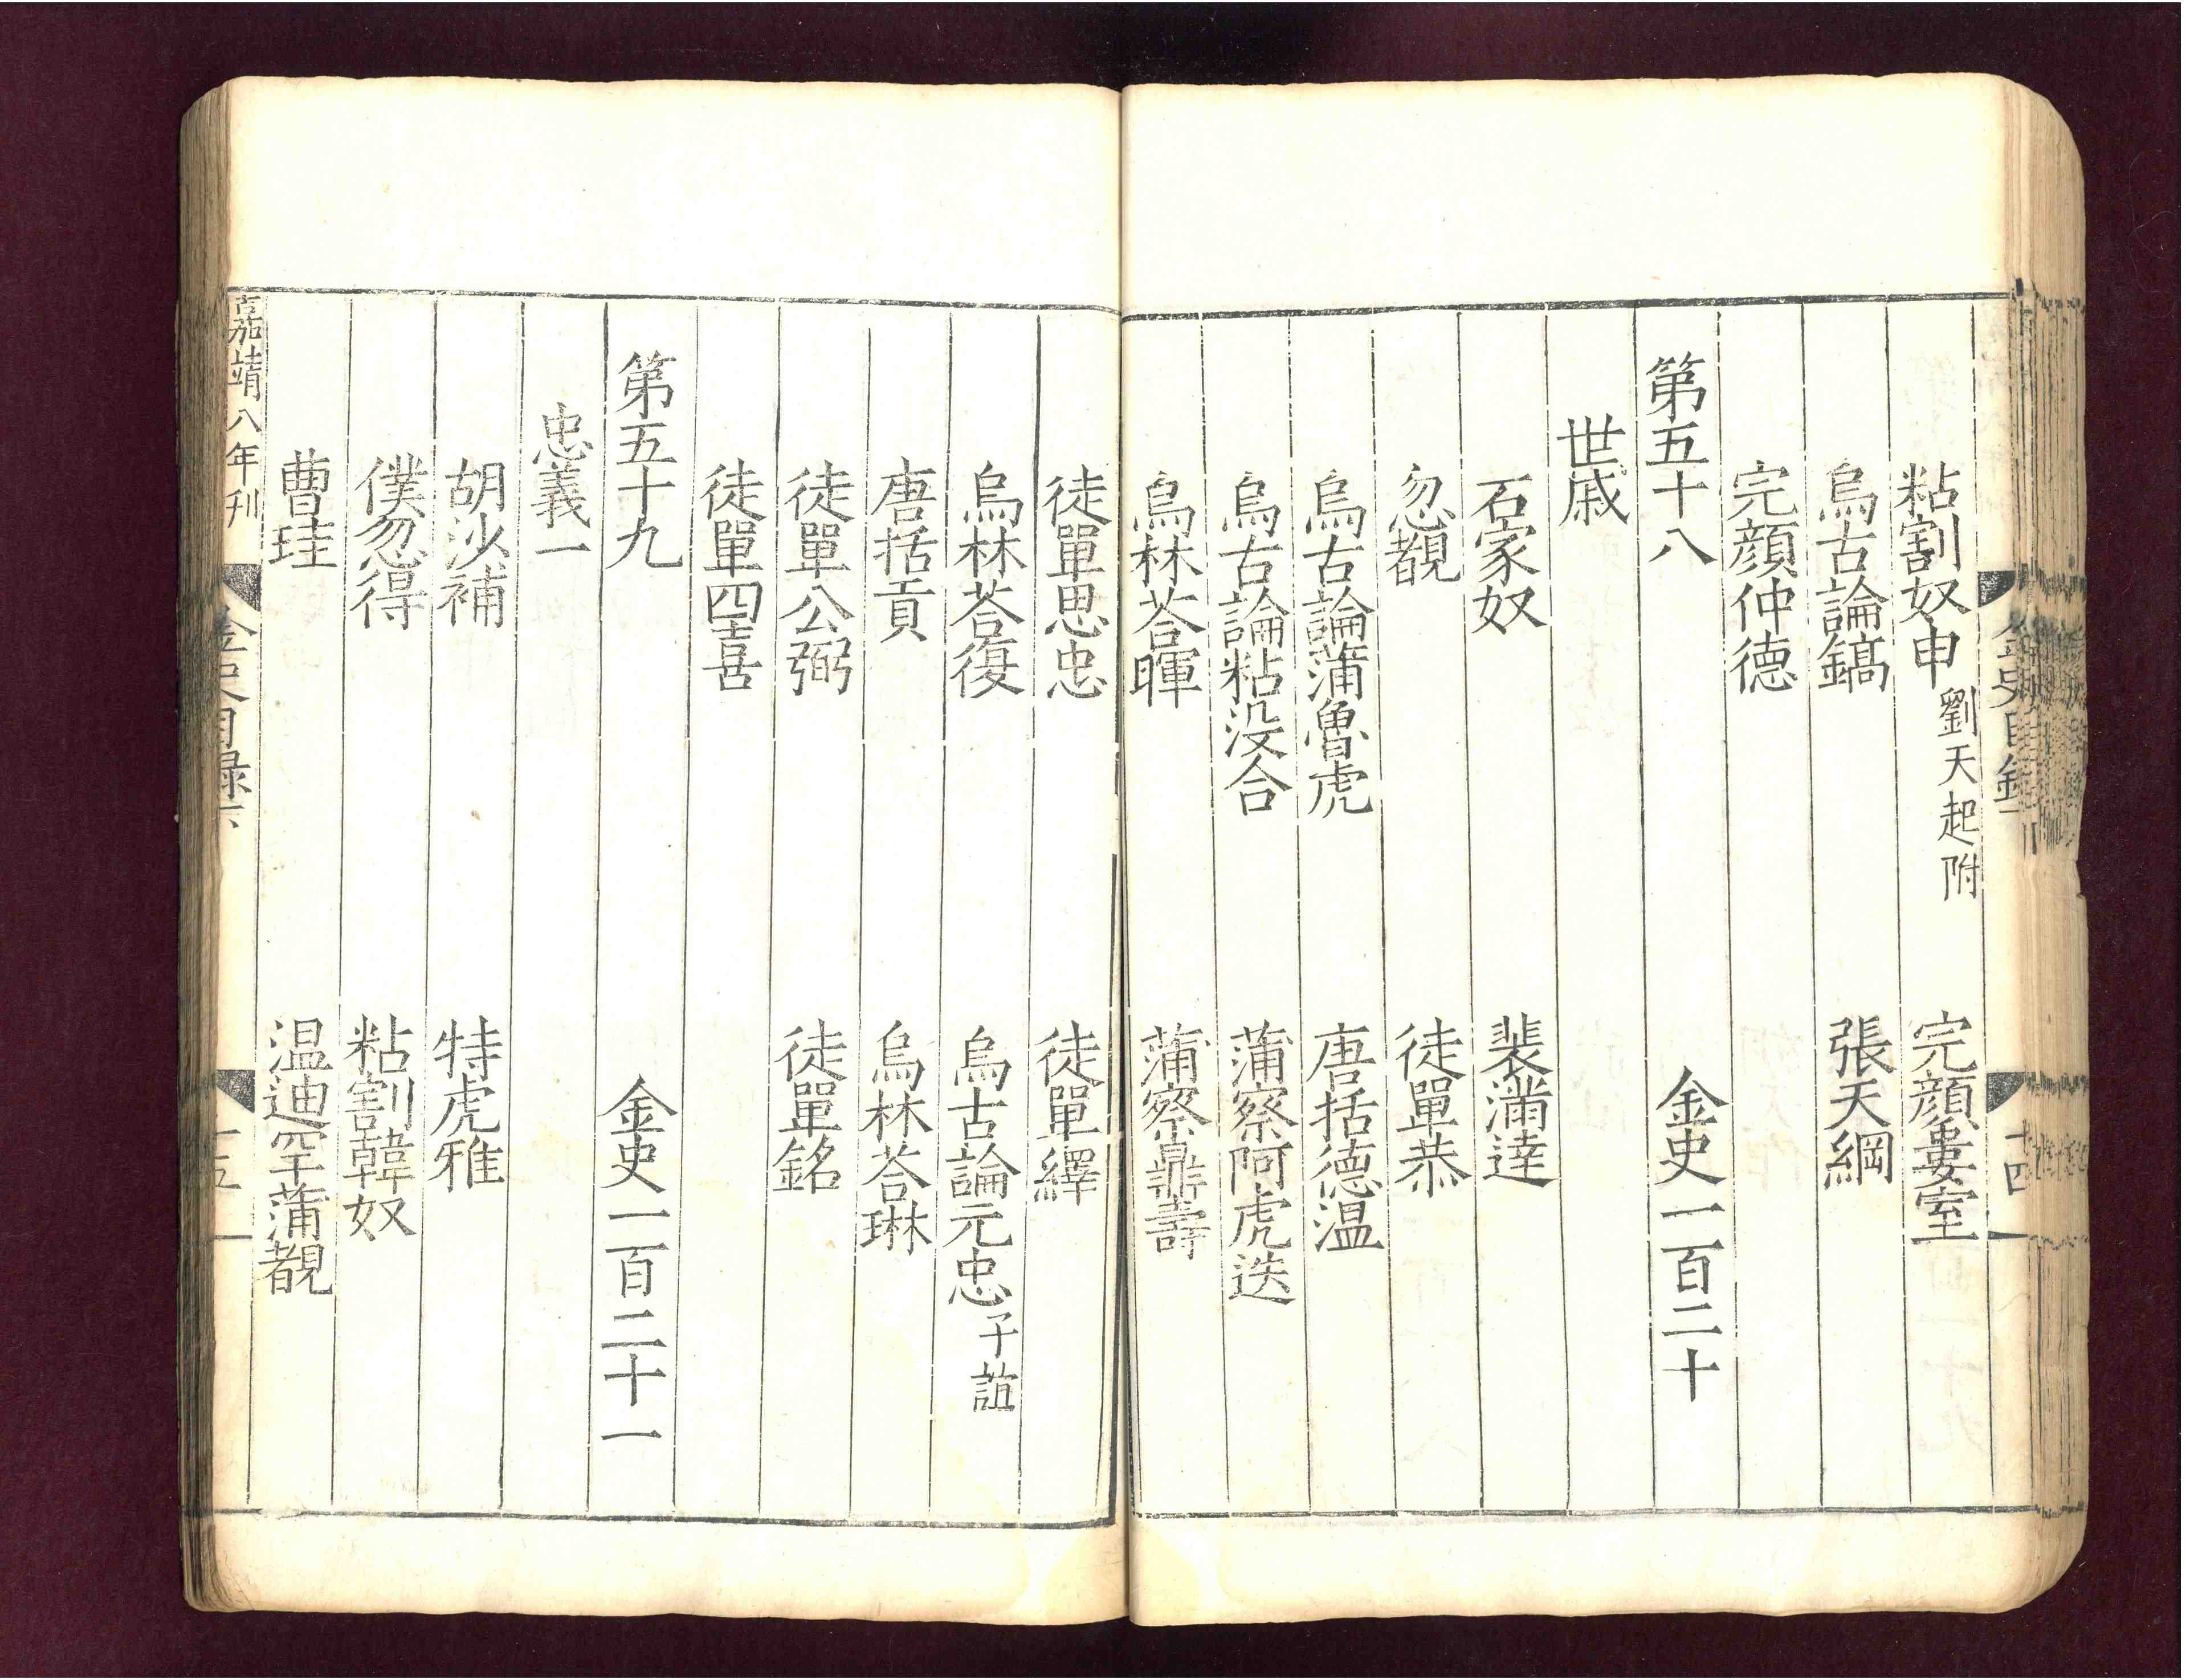 金史目錄下
十四
粘割奴申 劉天起附 完顏婁室
烏古論鎬 張天綱
完顏仲德
第五十八 金史一百二十
世戚
石家奴 裴滿達
忽覩 徒單恭
烏古論蒲魯虎 唐括德温
烏古論粘没合 蒲察阿虎迭
烏林荅暉 蒲察鼎壽
徒單思忠 徒單繹
烏林荅復 烏古論元忠 子誼
唐括貢 烏林荅琳
徒單公弼 徒單銘
徒單四喜
第五十九 金史一百二十一
忠義一
胡沙補 特虎雅
僕忽得 粘割韓奴
曹珪 温迪罕蒲覩
嘉靖八年刊
金史目録下
十五